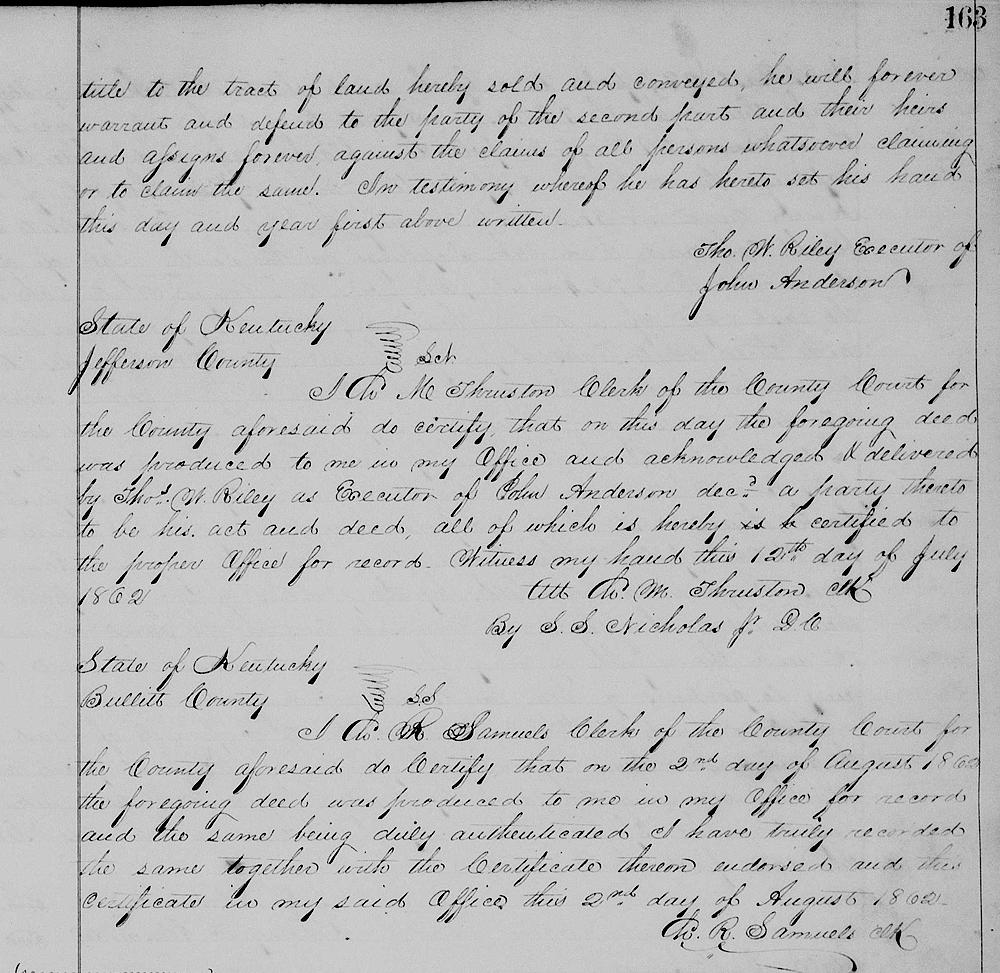 163
title to the tract of land hereby sold and conveyed, he will forever
warrant and defend to the party of the second part and their heirs
and assigns forever, against the claims of all persons whatsoever claiming
or to claim the same. In testimony whereof he has hereto set his hand
this day and year first above written.
Tho. W. Riley Executor of
John Anderson
State of Kentucky
Jefferson County Sct
I R. M Thruston Clerk of the County Court for
the County aforesaid do certify, that on this day the foregoing deed
was produced to me in my Office and acknowledged & delivered
by Thos. W. Riley as Executor of John Anderson decd. a party thereto
to be his act and deed, all of which is hereby is h certified to
the proper Office for record. Witness my hand this 12th day of July
1862 Att R. M. Thruston Clk
By S. S. Nicholas Jr. D C
State of Kentucky
Bullitt County S.S
I R. R Samuels Clerk of the County Court for
the County aforesaid do Certify that on the 2nd day of August 1862
the foregoing deed was produced to me in my Office for record
and the same being duly authenticated I have truly recorded
the same together with the Certificate thereon endorsed and this
certificate in my said Office this 2nd day of August 1862.
R. R. Samuels Clk